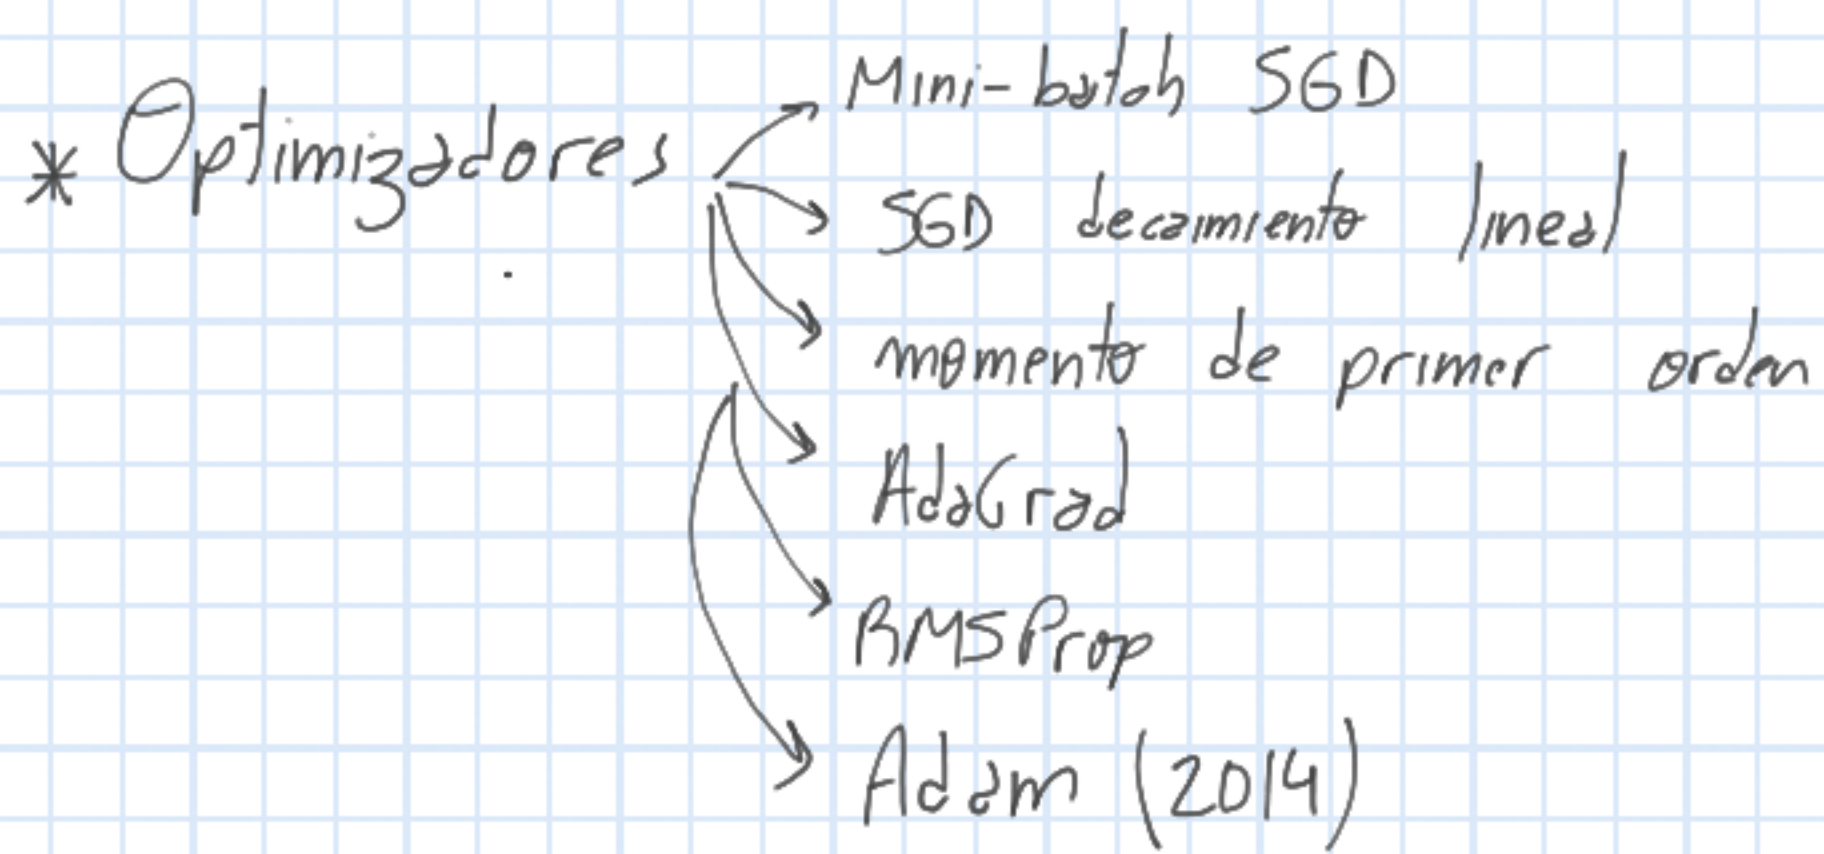 * Optimizadores
Mini-batch SGD
SGD decaimiento lineal
momento de primer orden
AdaGrad
RMSProp
Adam (2014)